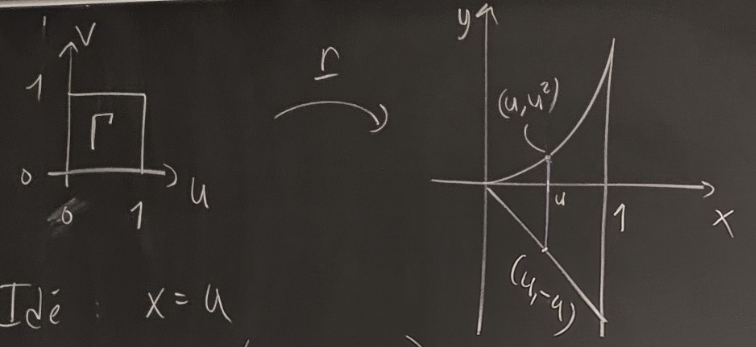 v
1
Γ
0
0
1
u
r
y
(u,u²)
u
1
x
(u,-u)
Idé : x = u